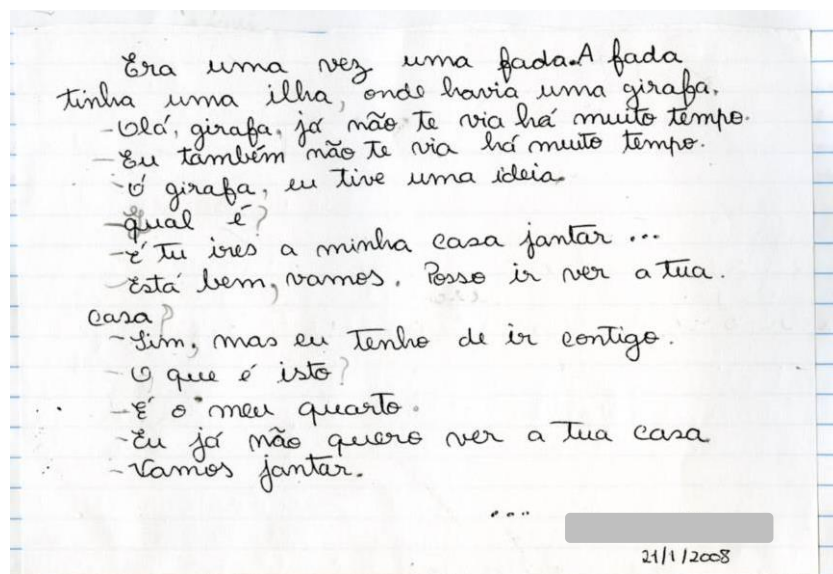 Era uma vez uma fada. A fada
tinha uma ilha, onde havia uma girafa.
- Olá, girafa, já não te via há muito tempo.
- Eu também não te via há muito tempo.
- Ó girafa, eu tive uma ideia.
- qual é?
- É tu ires a minha casa jantar ...
- Está bem, vamos. Posso ir ver a tua.
casa?
- Sim, mas eu tenho de ir contigo.
- O que é isto?
- É o meu quarto.
- Eu já não quero ver a tua casa
- Vamos jantar.
...
21/1/2008